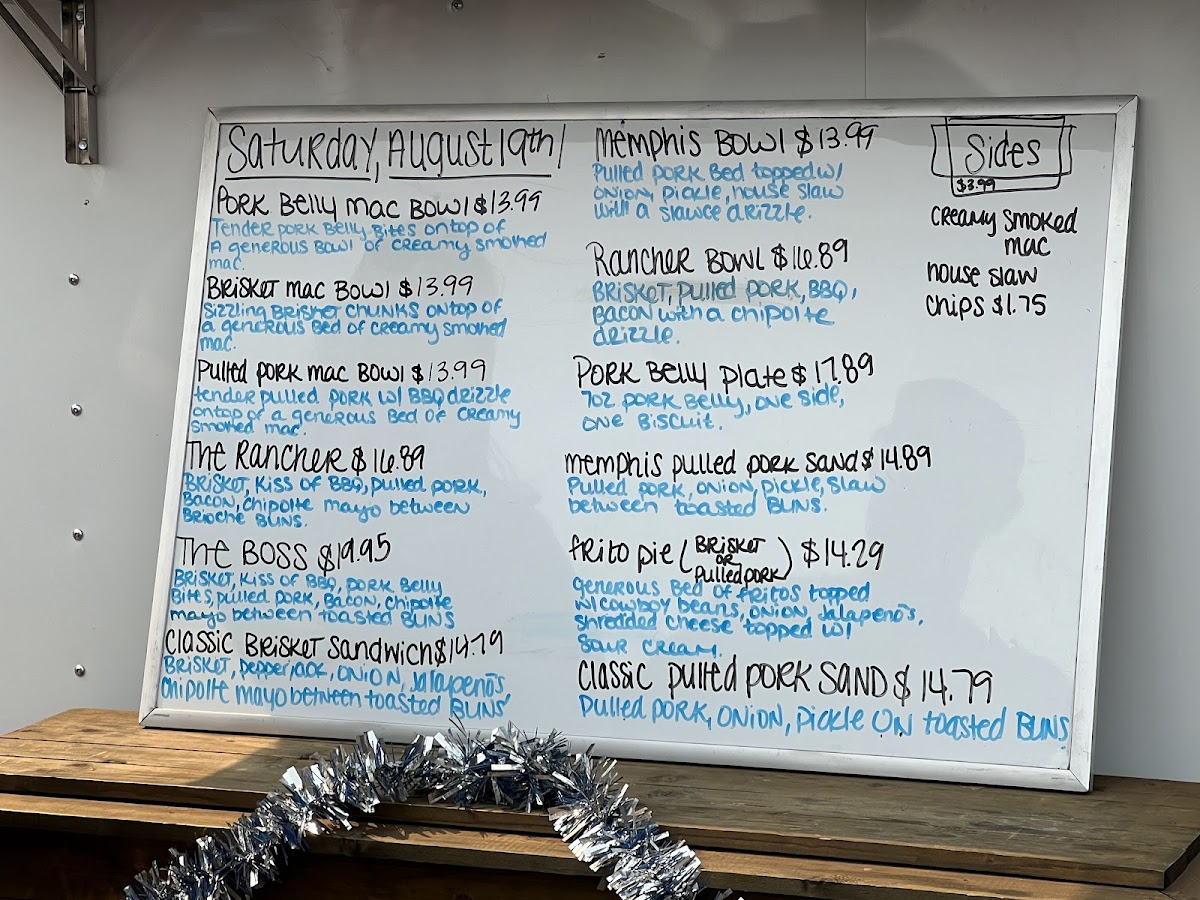 Saturday, August 19th
Pork Belly Mac Bowl $13.99
Tender pork Belly Bites ontop of
A generous Bowl of creamy smoked
mac.
Brisket mac Bowl $13.99
Sizzling Brisket chunks ontop of
a generous Bed of creamy smoked
mac.
Pulled pork mac Bowl $13.99
tender pulled pork w/ BBQ drizzle
ontop of a generous Bed of creamy
smoked mac.
The Rancher $16.89
Brisket, Kiss of BBQ, pulled pork,
Bacon, chipolte mayo between
Brioche Buns.
The Boss $19.95
Brisket, Kiss of BBQ, pork Belly
Bites, pulled pork, Bacon, chipolte
mayo between toasted Buns
Classic Brisket Sandwich $14.79
Brisket, pepperjack, onion, Jalapeno's,
chipolte mayo between toasted Buns
Memphis Bowl $13.99
Pulled pork Bed topped w/
onion, pickle, house slaw
with a slawce drizzle.
Rancher Bowl $16.89
Brisket, pulled pork, BBQ,
Bacon with a chipolte
drizzle.
Pork Belly plate $17.89
7oz pork Belly, one side,
one Biscuit.
memphis pulled pork sand $14.89
Pulled pork, onion, pickle, slaw
between toasted Buns.
frito pie (Brisket or pulled pork) $14.29
generous Bed of fritos topped
w/ cowboy beans, onion, Jalapeno's,
shredded cheese topped w/
sour cream.
Classic pulled pork sand $14.79
Pulled pork, onion, pickle on toasted Buns
Sides
$3.99
creamy smoked
mac
house slaw
chips $1.75